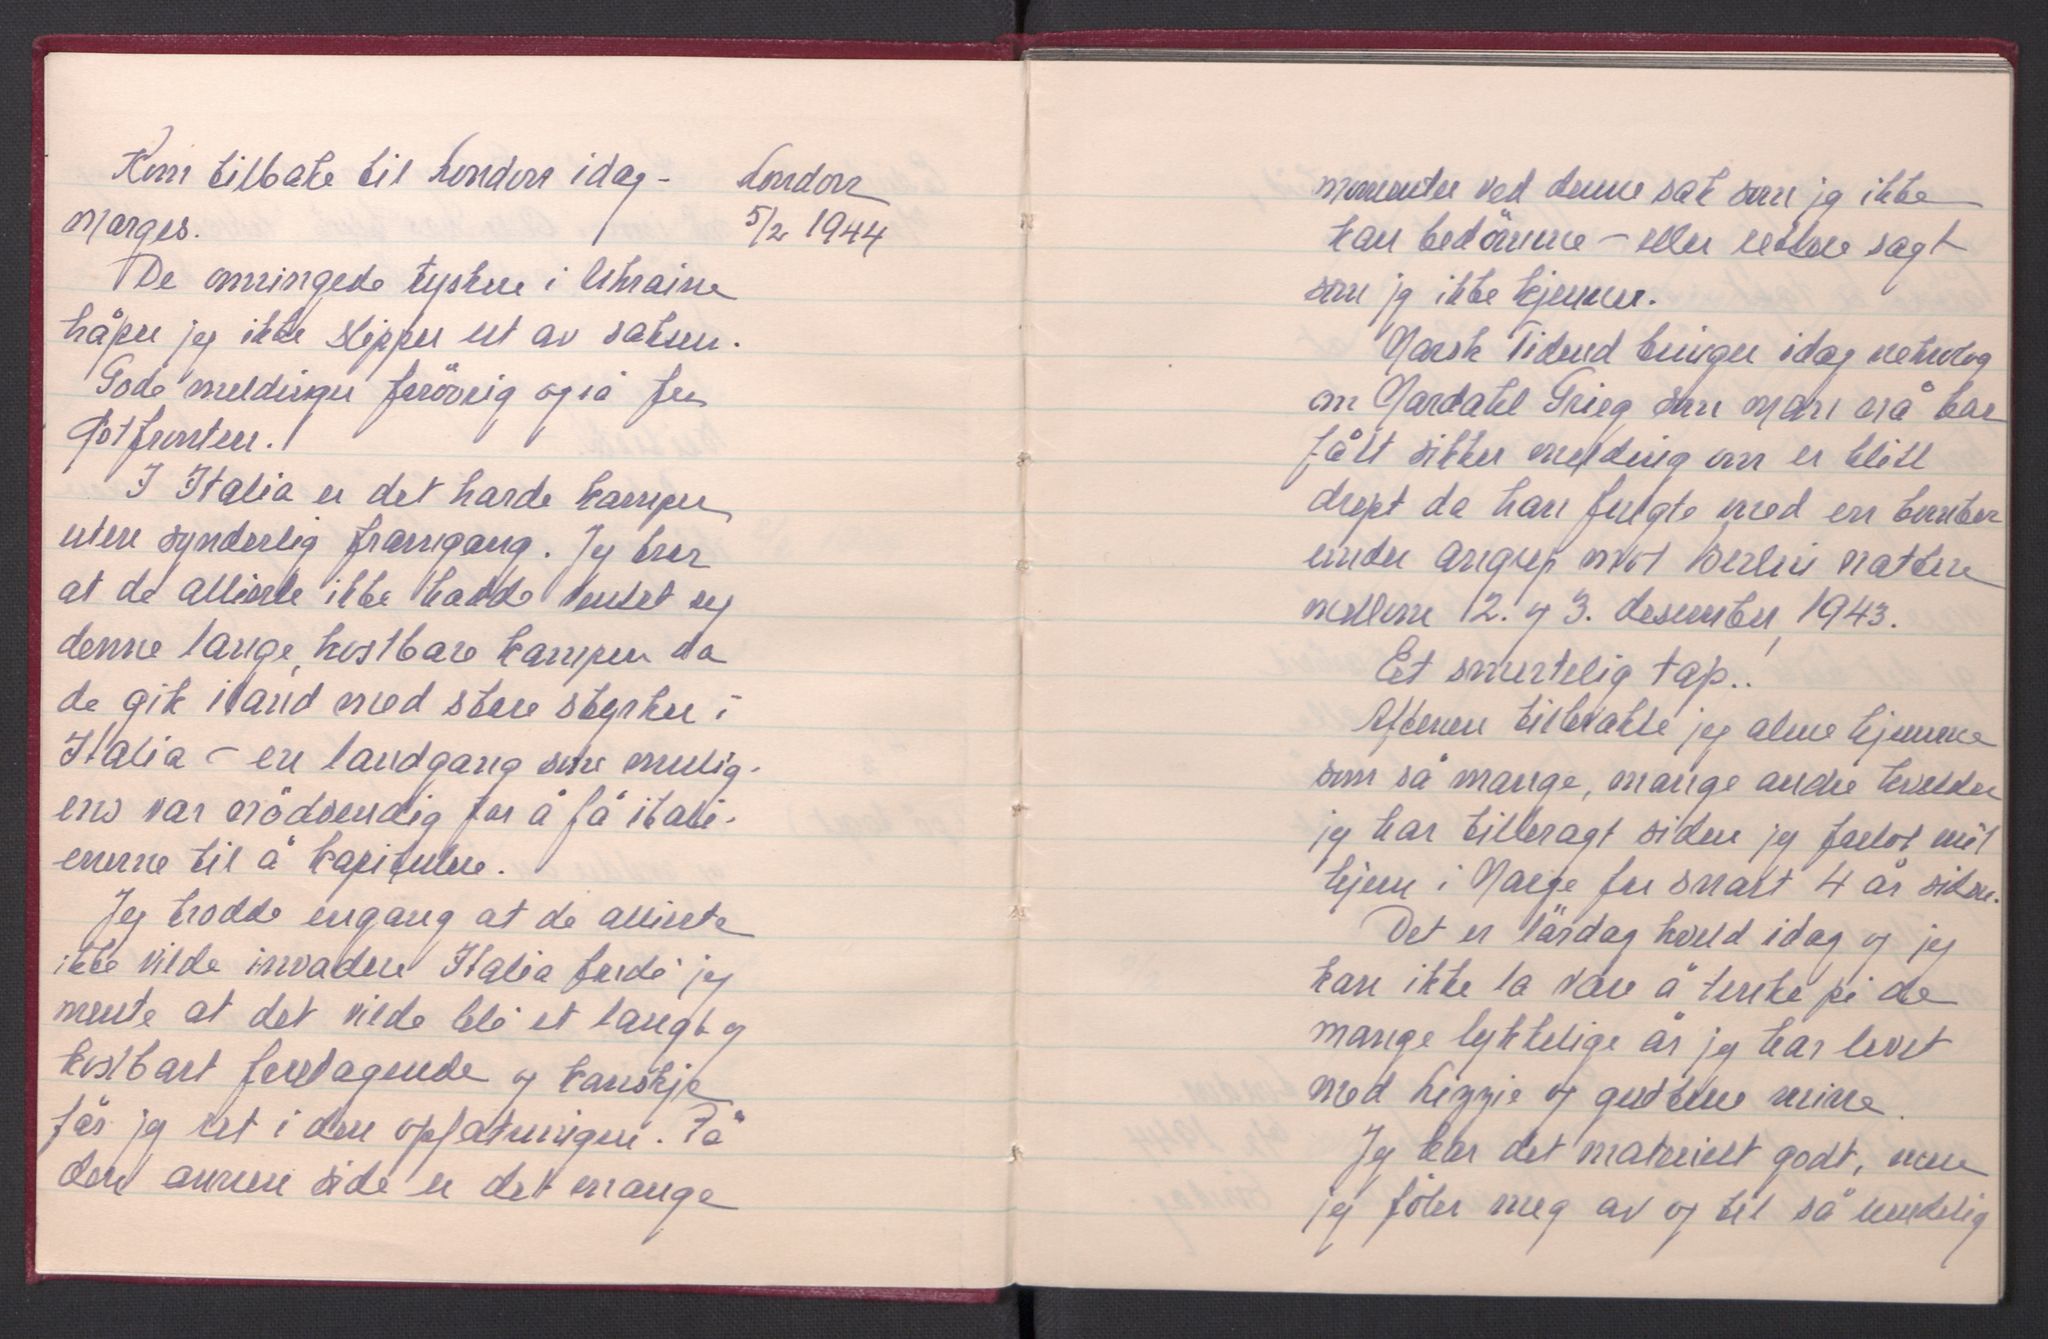 Kom tilbake til London idag-
morges.
London
5/2 1944
De omringede tyskere i Ukraine
håper jeg ikke slipper ut av saksen.
Gode meldinger forövrig også fra
Östfronten.
I Italia er det harde kamper
uten synderlig framgang. Jeg tror
at de allierte ikke hadde tenkt seg
denne lange, kostbare kampen da
de gik iland med store styrker i
Italia – en landgang som mulig-
ens var nödvendig for å få itali-
enerne til å kapitulere.
Jeg trodde engang at de allierte
ikke vilde invadere Italia fordi jeg
mente at det vilde bli et langt og
kostbart foretagende og kanskje
får jeg ret i den opfatningen. På
den annen side er det mange
momenter ved denne sak som jeg ikke
kan bedömme – eller rettere sagt
som jeg ikke kjenner.
Norsk Tidend bringer idag nekrolog
om Nordahl Grieg som man nå har
fått sikker melding om er blitt
drept da han fulgte med en bomber
under angrep mot Berlin natten
mellom 2. og 3. desember 1943.
Et smertelig tap..
Aftenen tilbrakte jeg alene hjemme
som så mange, mange andre kvelder
jeg har tilbragt siden jeg forlot mit
hjem i Norge for snart 4 år siden.
Det er lördag kveld idag og jeg
kan ikke la være å tenke på de
mange lykkelige år jeg har levet
med Lizzie og guttene mine.
Jeg har det materielt godt, men
jeg föler meg av og til så uendelig